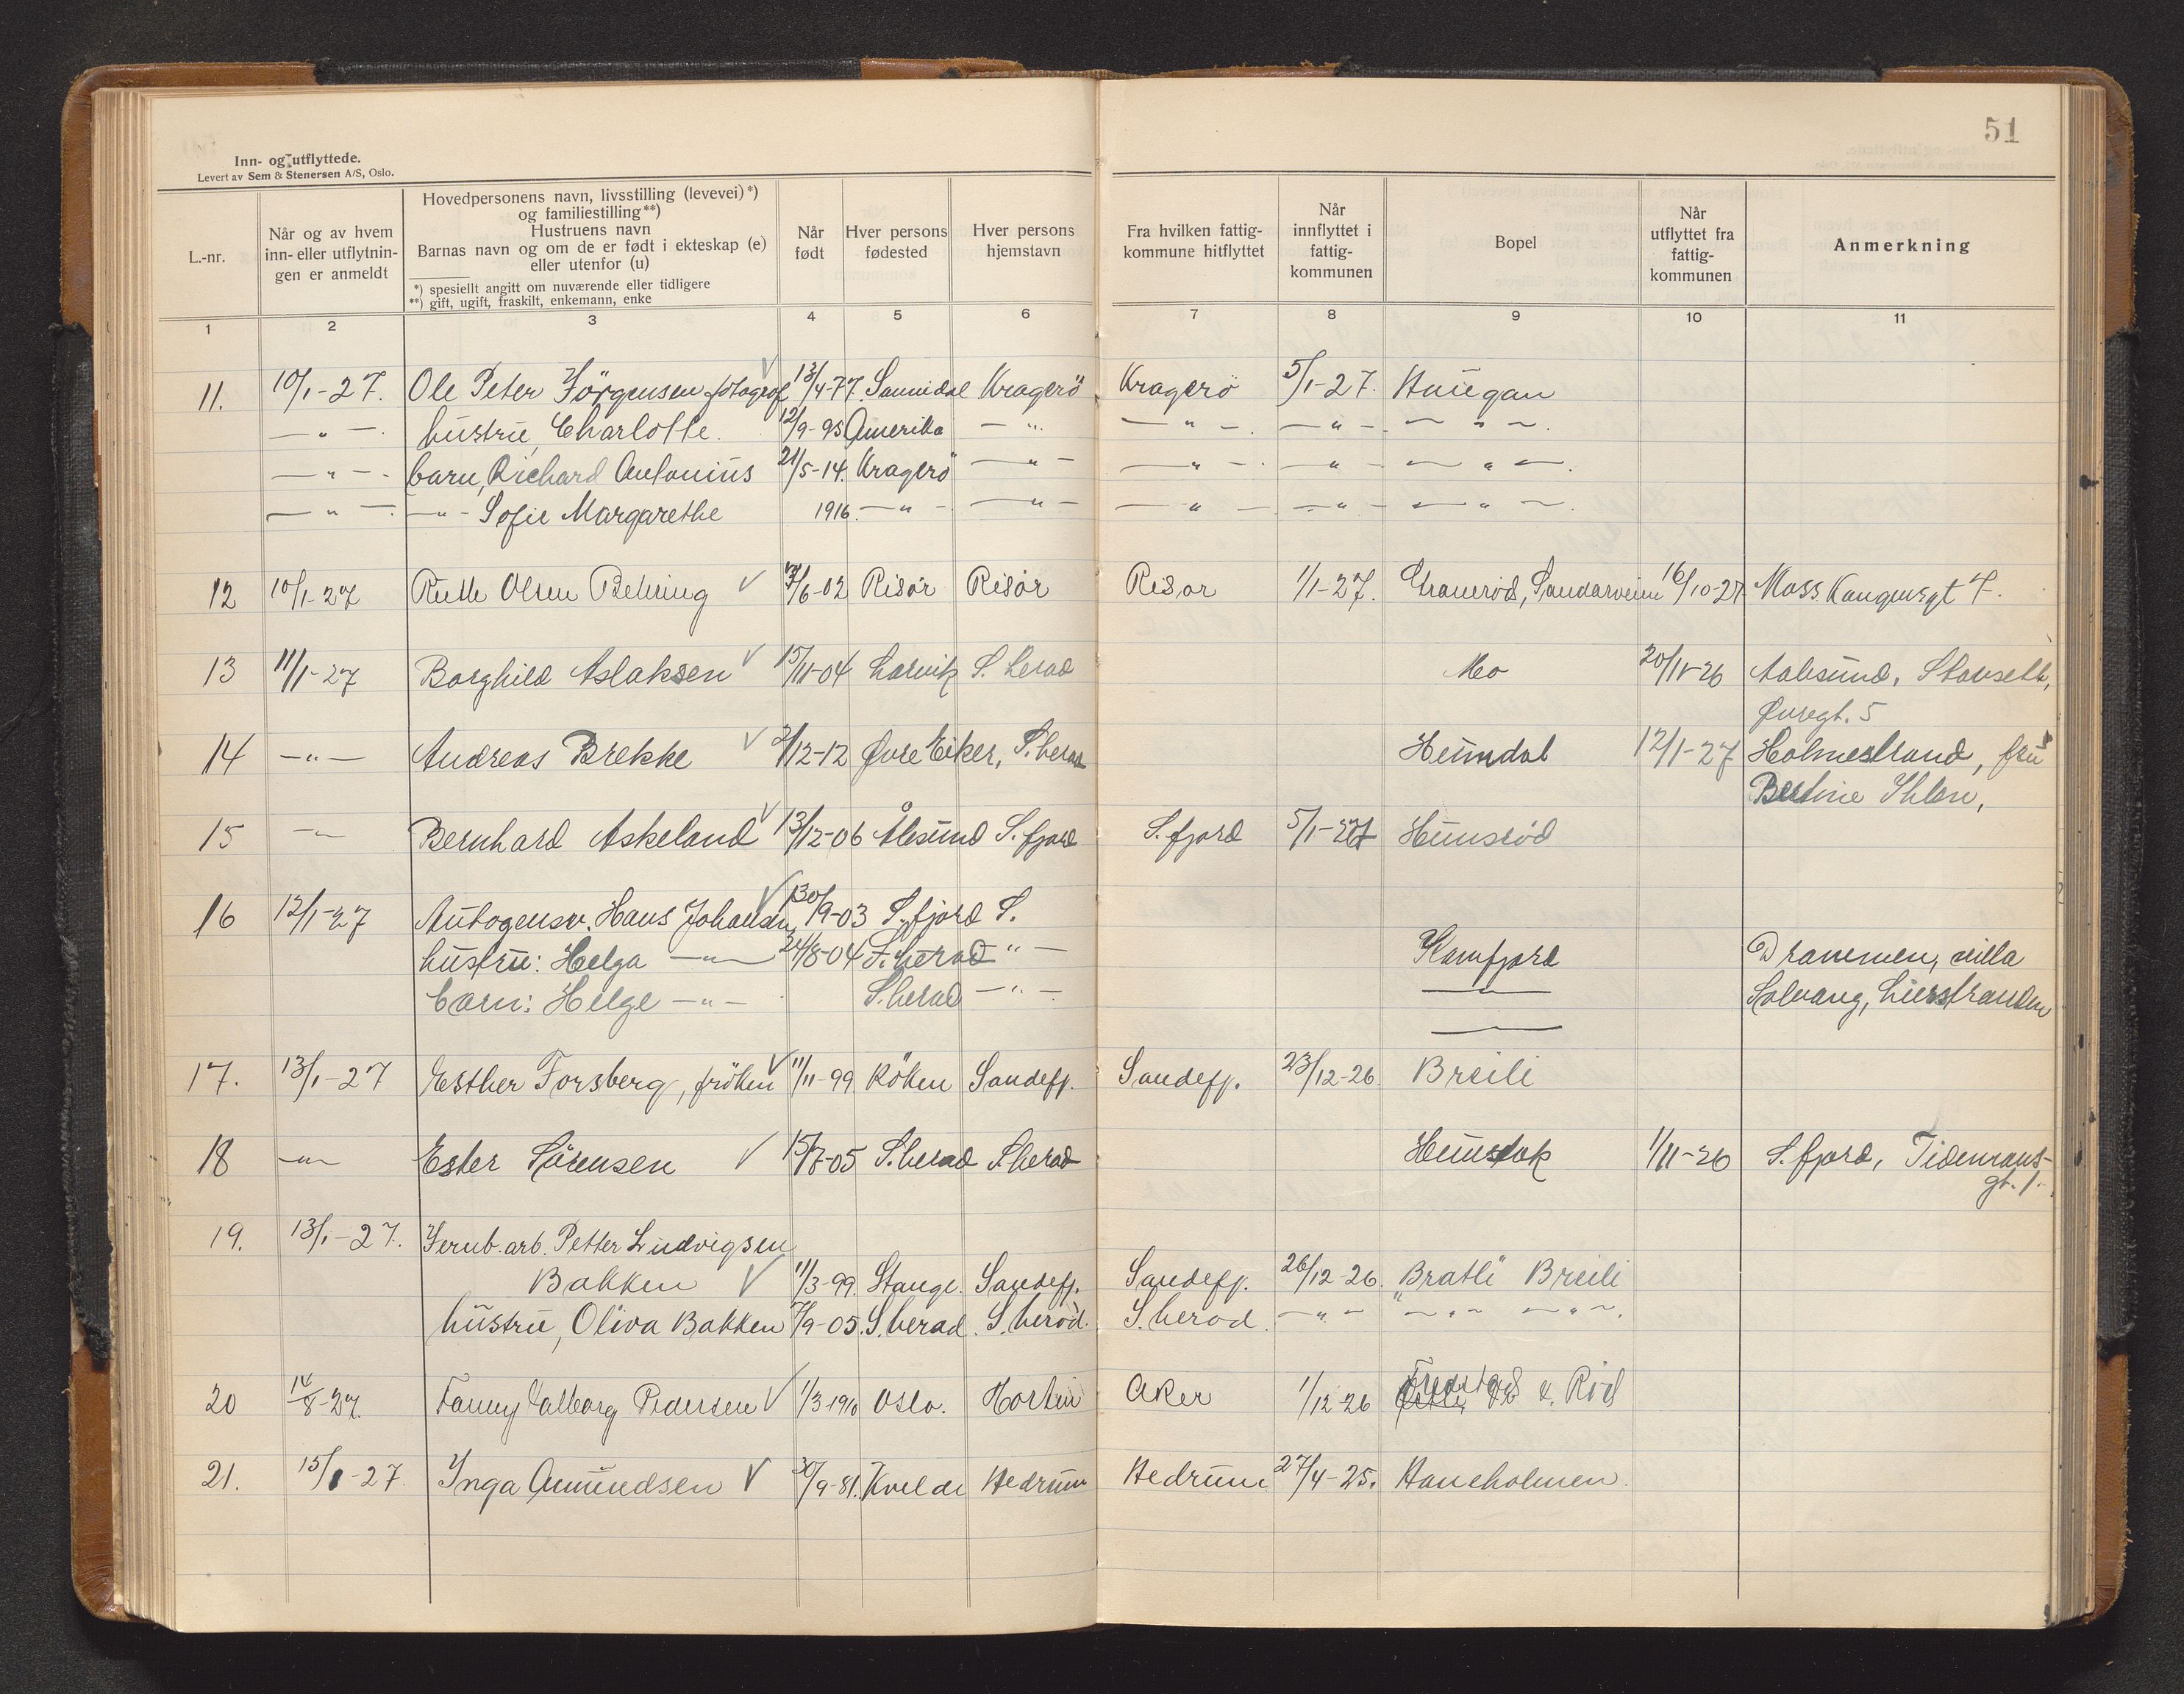 51
Inn- og utflyttede.
Levert av Sem & Stenersen A/S, Oslo.
L.-nr.
Når og av hvem
inn- eller utflytnin-
gen er anmeldt
Hovedpersonens navn, livsstilling (levevei)*)
og familiestilling**)
Hustruens navn
Barnas navn og om de er født i ekteskap (e)
eller utenfor (u)
*) spesielt angitt om nuværende eller tidligere
**) gift, ugift, fraskilt, enkemann, enke
Når
født
Hver persons
fødested
Hver persons
hjemstavn
Fra hvilken fattig-
kommune hitflyttet
Når
innflyttet i
fattig-
kommunen
Bopel
Når
utflyttet fra
fattig-
kommunen
Anmerkning
1 2 3 4 5 6 7 8 9 10 11
11. 10/1-27. Ole Peter Jörgensen, fotograf 13/4-77. Sannidal Kragerö Kragerö 5/1-27. Haugan
—"— hustru, Charlotte. 12/9-95 Amerika —"— —"— —"— —"—
—"— barn, Richard Antonius 21/5-14. Kragerö —"— —"— —"— —"—
—"— —"— Sofie Margarethe 1916. —"— —"— —"— —"— —"—
12 10/1-27 Ruth Olsen Behring √ 7/6-02 Risør Risør Risør 1/1-27. Granerød, Sandarveien 16/10-27 Moss. Kongensgt 7.
13 11/1-27 Borghild Aslaksen √ 15/11-04 Larvik S. herad Mo 20/11-26 Aalesund,
Øvregt. 5
14 —"— Andreas Brekke √ 2/12-12 Øvre Eiker, S. herad Heimdal 12/1-27 Holmestrand, fru
Bertine Ihlen,
15 —"— Bernhard Askeland √ 13/12-06 Ålesund S. fjord S. fjord 5/1-27 Hunsrød
16 12/1-27 Autogensv. Hans Johansen √ 30/9-03 S. fjord S.
hustru: Helga —"— 24/8-04 S. herad —"— Kamfjord Drammen, villa
barn: Helge —"— S. herad —"— —"— Solvang, Lierstranden
17. 13/1-27 Esther Forsberg, fröken √ 11/11-99 Röken Sandefj. Sandefj. 23/12-26. Breili
18 —"— Ester Sørensen √ 15/7-05 S. herad S. herad Heimstøk 1/11-26 S. fjord, Tidemans-
gt. 1.
19. 13/1-27. Jernb. arb. Petter Ludvigsen
Bakken √ 11/3-99. Stange. Sandefj. Sandefj. 26/12-26. "Bratli" Breili
hustru, Oliva Bakken 7/9-05. S. herad. S. herad. S. herad. —"— —"— —"—
20 14/8-27. Fanny Valborg Pedersen √ 1/3-1910 Oslo. Horten Aker 1/12-26 Fredstad v. Rød
21. 15/1-27 Inga Amundsen √ 30/9-81. Kvelde Hedrum Hedrum 27/4-25. Haneholmen.